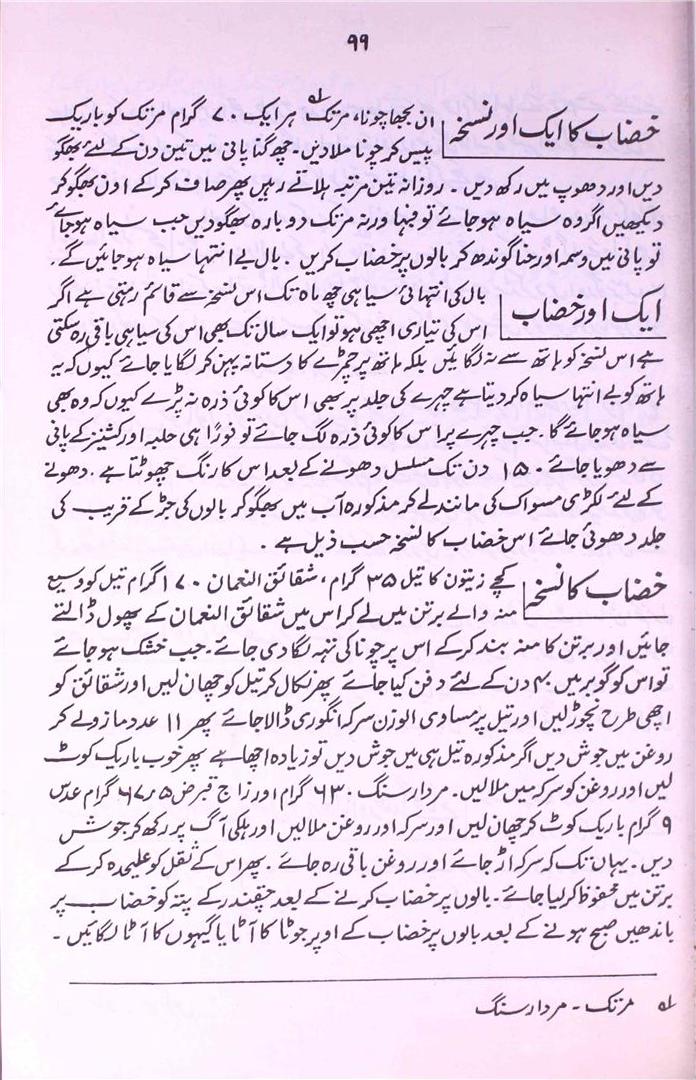 ۹۹
خضاب کا ایک اور نسخہ
ان بجھا چونا، مرتک لہ ہر ایک ۷۰ گرام مرتک کو باریک
پیس کر چونا ملا دیں۔ چھ گنا پانی میں تین دن کے لئے بھگو
دیں اور دھوپ میں رکھ دیں۔ روزانہ تین مرتبہ ہلاتے رہیں پھر صاف کر کے اون بھگو کر
دیکھیں اگر وہ سیاہ ہو جائے تو فبہا ورنہ مرتک دوبارہ بھگو دیں جب سیاہ ہو جائے
تو پانی میں وسمہ اور حنا گوندھ کر بالوں پر خضاب کریں۔ بال بے انتہا سیاہ ہو جائیں گے۔
ایک اور خضاب
بال کی انتہائی سیاہی چھ ماہ تک اس نسخہ سے قائم رہتی ہے اگر
اس کی تیاری اچھی ہو تو ایک سال تک بھی اس کی سیاہی باقی رہ سکتی
ہے اس نسخہ کو ہاتھ سے نہ لگائیں بلکہ ہاتھ پر چمڑے کا دستانہ پہن کر لگایا جائے کیوں کہ یہ
ہاتھ کو بے انتہا سیاہ کر دیتا ہے چہرے کی جلد پر بھی اس کا کوئی ذرہ نہ پڑے کیوں کہ وہ بھی
سیاہ ہو جائے گا۔ جب چہرے پر اس کا کوئی ذرہ لگ جائے تو فوراً ہی حلبہ اور کشنیز کے پانی
سے دھویا جائے۔ ۱۵ دن تک مسلسل دھونے کے بعد اس کا رنگ چھوٹتا ہے۔ دھونے
کے لئے لکڑی مسواک کی مانند لے کر مذکورہ آب میں بھگو کر بالوں کی جڑ کے قریب کی
جلد دھوئی جائے اس خضاب کا نسخہ حسب ذیل ہے۔
خضاب کا نسخہ
کچے زیتون کا تیل ۳۵ گرام، شقائق النعمان ۱۷۰ گرام تیل کو وسیع
منہ والے برتن میں لے کر اس میں شقائق النعمان کے پھول ڈالتے
جائیں اور برتن کا منہ بند کر کے اس پر چونا کی تہہ لگا دی جائے۔ جب خشک ہو جائے
تو اس کو گوبر میں ۴۰ دن کے لئے دفن کیا جائے پھر نکال کر تیل کو چھان لیں اور شقائق کو
اچھی طرح نچوڑ لیں اور تیل پر مساوی الوزن سرکہ انگوری ڈالا جائے پھر ۱۱ عدد مازو لے کر
روغن میں جوش دیں اگر مذکورہ تیل ہی میں جوش دیں تو زیادہ اچھا ہے پھر خوب باریک کوٹ
لیں اور روغن کو سرکہ میں ملا لیں۔ مردار سنگ ۶۳۰ گرام اور زاج قبرض ۶۴٫۵ گرام عدس
۹ گرام باریک کوٹ کر چھان لیں اور سرکہ اور روغن ملا لیں اور ہلکی آگ پر رکھ کر جوش
دیں۔ یہاں تک کہ سرکہ اڑ جائے اور روغن باقی رہ جائے۔ پھر اس کے ثقل کو علیحدہ کر کے
برتن میں محفوظ کر لیا جائے۔ بالوں پر خضاب کرنے کے بعد چقندر کے پتہ کو خضاب پر
باندھیں صبح ہونے کے بعد بالوں پر خضاب کے اوپر جو کا آٹا یا گیہوں کا آٹا لگائیں۔
لہ مرتک۔ مردار سنگ